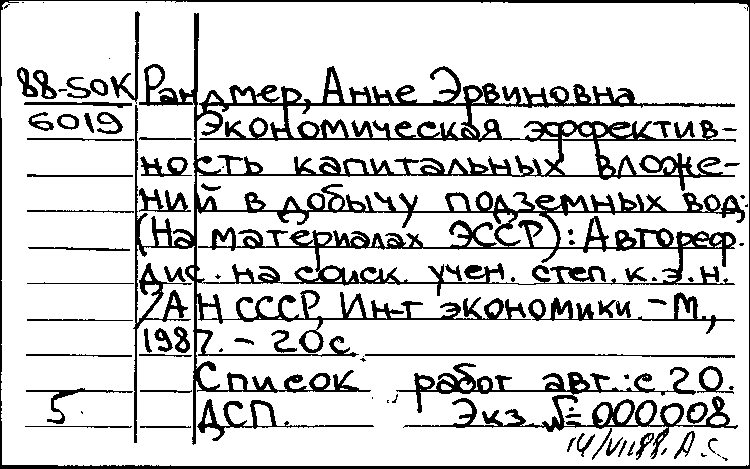 88-50К Рандмер, Анне Эрвиновна
6019 Экономическая эффектив-
ность капитальных вложе-
ний в добычу подземных вод:
(На материалах ЭССР): Автореф.
дис. на соиск. учен. степ. к.э.н.
/АН СССР, Ин-т экономики. - М.,
1987. - 20 с.
Список работ авт.: с. 20.
5. ДСП. Экз. № 000008
14/VII88. А.С